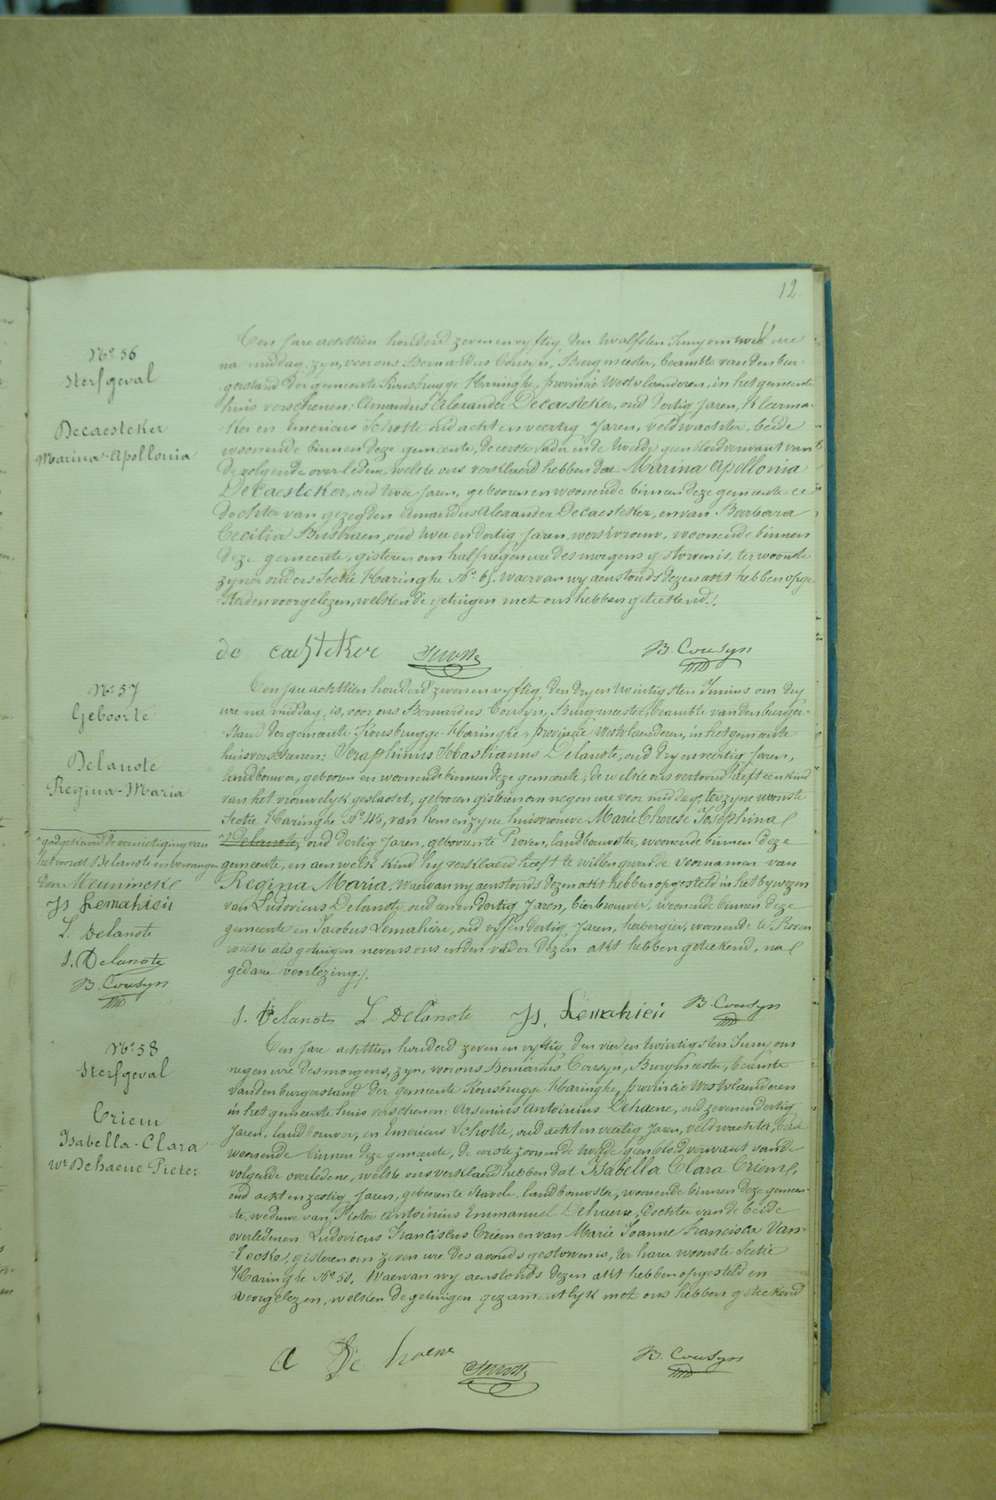 12
Nº 56
Sterfgeval
Decaesteker
Marina-Apollonia
Den jare achttien honderd zeven en vyftig, den twalfsten Juny om twee ure
na middag, zyn, voor ons Bernardus Cousyn, Burgmeester, beambte van den bur-
gerstand der gemeente Rousbrugge-Haringhe, provincie Westvlaenderen, in het gemeente
huis verschenen Amandus Alexander Decaesteker, oud dertig jaren, kleerma-
ker en Emericus Schotte oud acht en veertig jaren, veldwachter, beide
woonende binnen deze gemeente, de eerste vader en de tweede geen bloedverwant van
de volgende overledene, welke ons verklaerd hebben dat Marina Apollonia
Decaesteker, oud twee jaren, geboren en woonende binnen deze gemeente
dochter van gezegden Amandus Alexander Decaesteker, en van Barbara
Cecilia, oud twee en dertig jaren, woonende binnen
deze gemeente, gisteren om half negen ure des morgens gestorven is, ter woonste
zyner ouders Sectie Haringhe Nº 61. Waervan wy aenstonds dezen akt hebben opge-
steld en voorgelezen, welken de getuigen met ons hebben geteekend.
de caesteker Schotte B. Cousyn
Nº 57
Geboorte
Delanote
Regina-Maria
Den jare achttien honderd zeven en vyftig den dry en twintigsten Junius om dry
ure na middag, is, voor ons Bernardus Cousyn, Burgmeester, beambte van den burger-
stand der gemeente Rousbrugge-Haringhe, provincie Westvlaenderen, in het gemeente
huis verschenen: Seraphinus Sebastianus Delanote, oud dry en veertig jaren,
landbouwer, geboren en woonende binnen deze gemeente, de welke ons vertoond heeft een kind
van het vrouwelyk geslacht, geboren gisteren om negen ure voor middag, ter zyne woonste
Sectie Haringhe Nº 46, van hem en zyne huisvrouwe Marie Therese Josephina
Delanote, oud dertig jaren, geboren te Proven, landbouwster, woonende binnen deze
gemeente, en aen welk kind hy verklaerd heeft te willen geven de voornamen van
Regina Maria. Waervan wy aenstonds dezen akt hebben opgesteld in het bywezen
van Ludovicus Delanote, oud een en dertig jaren, bierbrouwer, woonende binnen deze
gemeente en Jacobus Lemahieu, oud vyf en dertig jaren, herbergier, woonende te Proven
welke als getuigen nevens ons en den vader dezen akt hebben geteekend, na
gedane voorlezing.
goedgekeurd de vernietiging van
het woord Delanote en vervangen
door Meuninck
Js Lemahieu
L Delanote
S. Delanote
B. Cousyn
S. Delanote L Delanote Js. Lemahieu B. Cousyn
Nº 58
Sterfgeval
Criem
Isabella-Clara
We Dehaene Pieter
Den jare achttien honderd zeven en vyftig den vier en twintigsten Juny om
negen ure des morgens, zyn, voor ons Bernardus Cousyn, Burgmeester, beambte
van den burgerstand der gemeente Rousbrugge Haringhe, provincie Westvlaenderen
in het gemeente huis verschenen: Arsenius Antoinius Dehaene, oud zeven en dertig
jaren, landbouwer, en Emericus Schotte, oud acht en veertig jaren, veldwachter, beide
woonende binnen deze gemeente, de eerste zoon en de tweede geen bloedverwant van de
volgende overledene, welke ons verklaerd hebben dat Isabella Clara Criem,
oud acht en zestig jaren, geboren te Stavele, landbouwster, woonende binnen deze gemeen-
te, weduwe van Pieter Antoinius Emmanuel Dehaene, dochter van de beide
overledenen Ludovicus Franciscus Criem en van Marie Joanne Francisca Van-
, gisteren om zeven ure des avonds gestorven is, ter harer woonste Sectie
Haringhe Nº 50. Waervan wy aenstonds dezen akt hebben opgesteld en
voorgelezen, welken de getuigen gezamentlyk met ons hebben geteekend
a De haene Schotte B. Cousyn